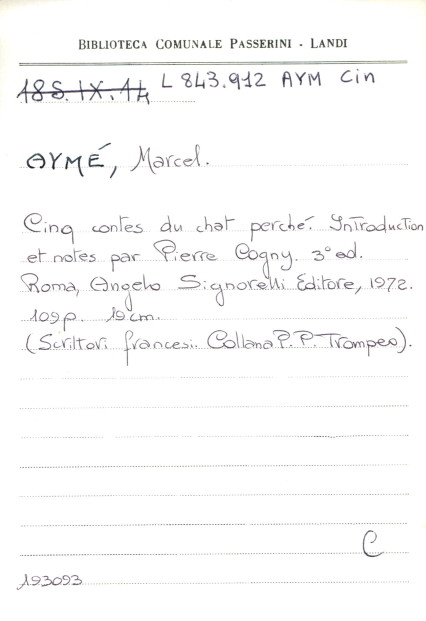 BIBLIOTECA COMUNALE PASSERINI - LANDI
18S.IX.14 L 843.912 AYM Cin
AYMÉ, Marcel.
Cinq contes du chat perché. Introduction
et notes par Pierre Cogny. 3° ed.
Roma, Angelo Signorelli Editore, 1972.
109 p. 19 cm.
(Scrittori francesi. Collana P. P. Trompeo).
C
193093